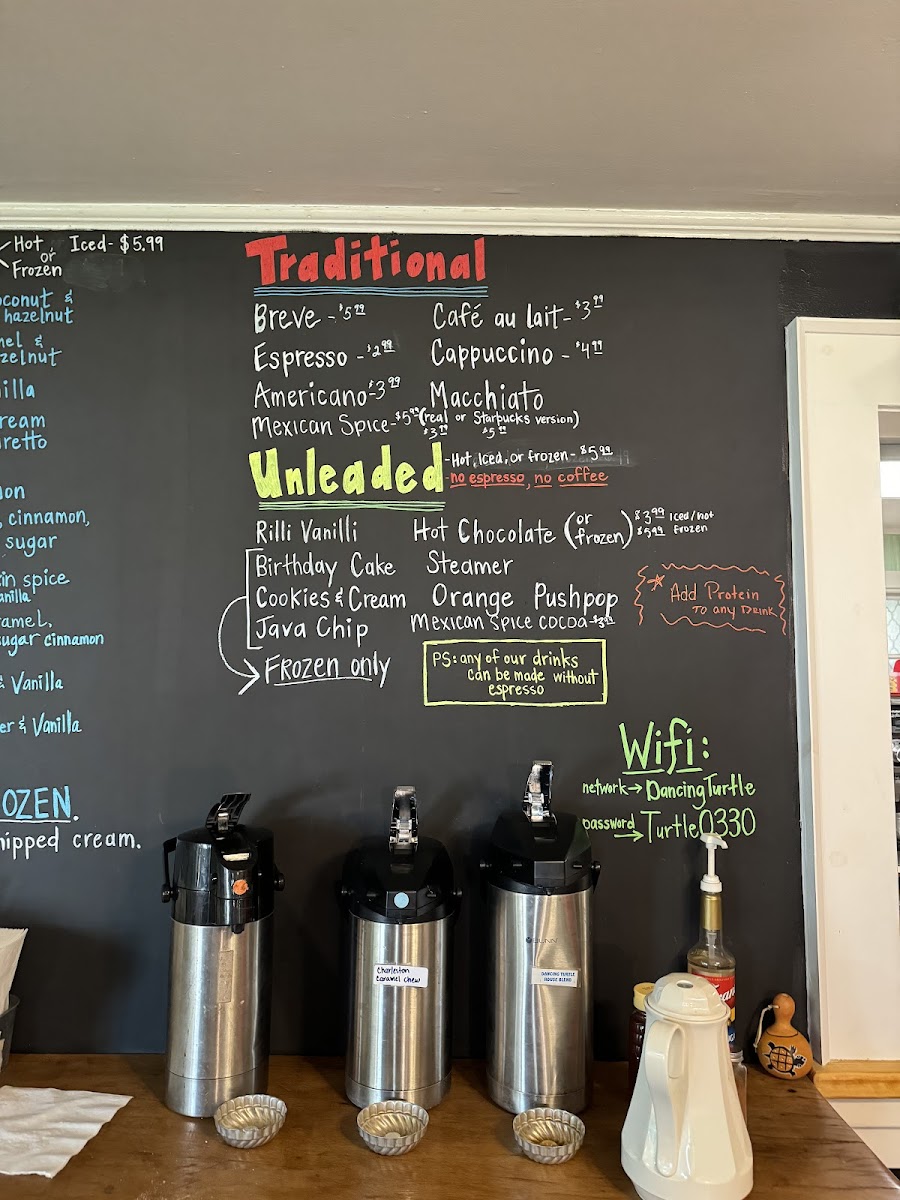 Hot or Frozen Iced- $5.99
oconut &
hazelnut
mel &
zelnut
illa
ream
retto
on
, cinnamon,
sugar
in spice
anilla
ramel,
sugar cinnamon
& Vanilla
er & Vanilla
OZEN.
hipped cream.
Traditional
Breve - $5.99
Café au lait- $3.99
Espresso - $2.99
Cappuccino - $4.99
Americano-$3.99
Macchiato
(real or Starbucks version)
$3.99 $5.99
Mexican Spice-$5.99
Unleaded
-Hot, Iced, or frozen- $5.99
-no espresso, no coffee
Rilli Vanilli
Hot Chocolate (or frozen) $3.99 Iced/hot
$5.99 Frozen
Birthday Cake
Steamer
Cookies & Cream
Orange Pushpop
Java Chip
Mexican Spice cocoa-$3.99
Frozen only
PS: any of our drinks
can be made without
espresso
Add Protein
To any Drink
Wifi:
network→ DancingTurtle
password → Turtle0330
Charleston
Caramel Chew
BUNN
DANCING TURTLE
HOUSE BLEND